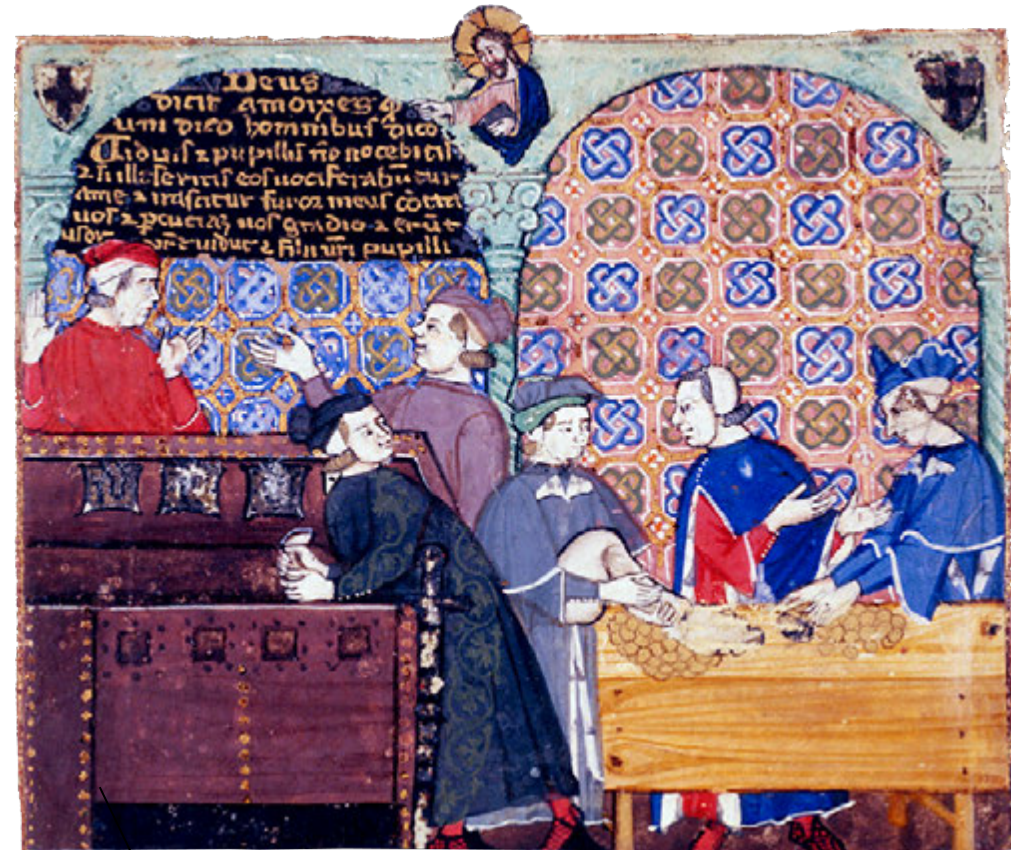 Deus
dicit amoixes q
um dico hominibus dico
Viduis ⁊ pupillis no nocebitis
⁊ si illeseritis eos uociferabut ur
ame ⁊ irascitur furor meus cotra
uos ⁊ pcuciaz uos gladio ⁊ erut
uidue ⁊ filii uri pupilli